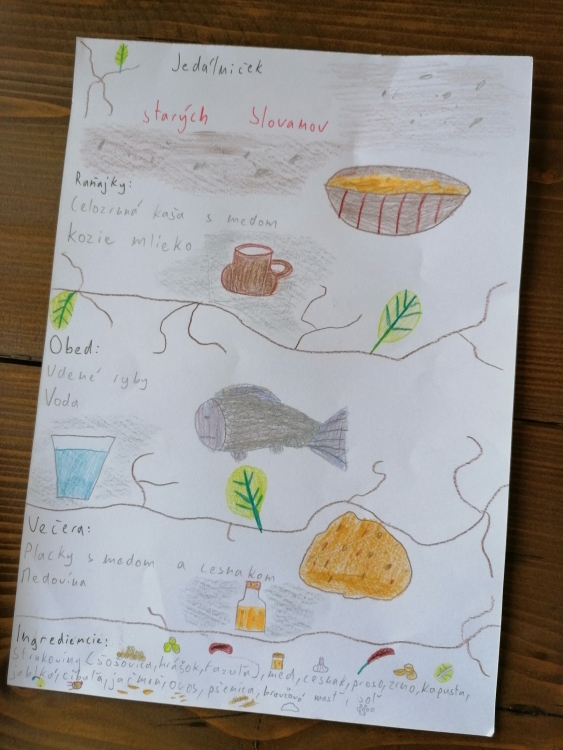 Jedálniček
starých Slovanov
Raňajky:
Celozrnná kaša s medom
kozie mlieko
Obed:
Udené ryby
Voda
Večera:
Placky s medom a cesnakom
Medovina
Ingrediencie:
Strukoviny (šošovica, hrášok, fazuľa), med, cesnak, proso, zrno, kapusta,
jablká, cibuľa, jačmeň, oves, pšenica, bravčová masť, soľ